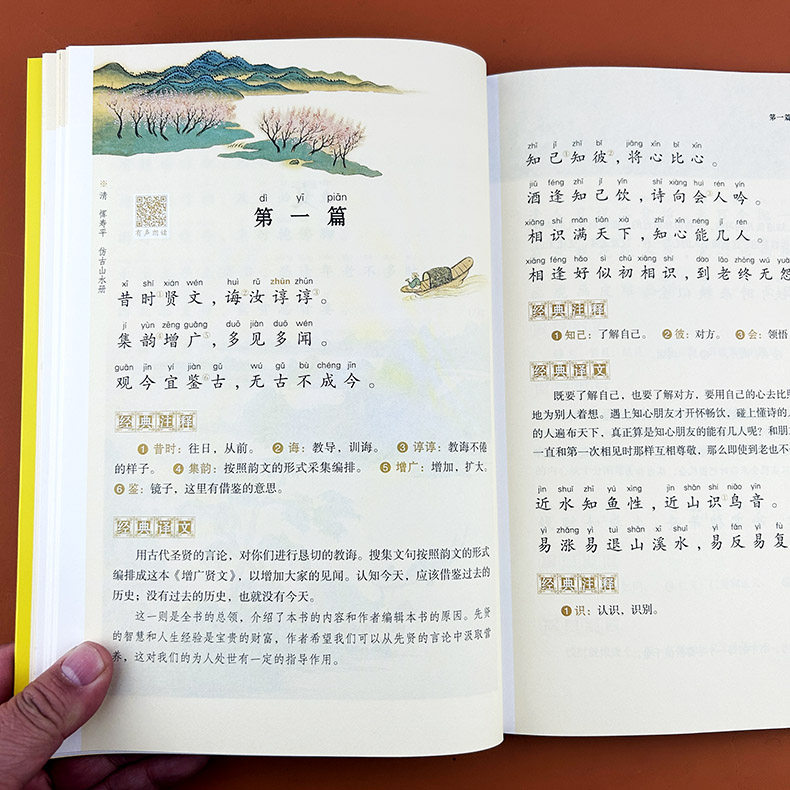 ※ 清 恽寿平 仿古山水册
有声朗读
dì yī piān
第一篇
xī shí xián wén huì rǔ zhūn zhūn
昔时贤文，诲汝谆谆③。
jí yùn zēng guǎng duō jiàn duō wén
集韵④增广⑤，多见多闻。
guān jīn yí jiàn gǔ wú gǔ bù chéng jīn
观今宜鉴⑥古，无古不成今。
经典注释
① 昔时：往日，从前。 ② 诲：教导，训诲。 ③ 谆谆：教诲不倦
的样子。 ④ 集韵：按照韵文的形式采集编排。 ⑤ 增广：增加，扩大。
⑥ 鉴：镜子，这里有借鉴的意思。
经典译文
用古代圣贤的言论，对你们进行恳切的教诲。搜集文句按照韵文的形式
编排成这本《增广贤文》，以增加大家的见闻。认知今天，应该借鉴过去的
历史；没有过去的历史，也就没有今天。
这一则是全书的总领，介绍了本书的内容和作者编辑本书的原因。先贤
的智慧和人生经验是宝贵的财富，作者希望我们可以从先贤的言论中汲取营
养，这对我们的为人处世有一定的指导作用。
第一篇
zhī jǐ zhī bǐ jiāng xīn bǐ xīn
知己①知彼②，将心比心。
jiǔ féng zhī jǐ yǐn shī xiàng huì rén yín
酒逢知己饮，诗向会③人吟。
xiāng shí mǎn tiān xià zhī xīn néng jǐ rén
相识满天下，知心能几人。
xiāng féng hǎo sì chū xiāng shí dào lǎo zhōng wú
相逢好似初相识，到老终无怨
经典注释
① 知己：了解自己。 ② 彼：对方。 ③ 会：领悟
经典译文
既要了解自己，也要了解对方，要用自己的心去比照
地为别人着想。遇上知心朋友才开怀畅饮，碰上懂诗的
的人遍布天下，真正算是知心朋友的能有几人呢？和朋
一直和第一次相见时那样互相尊敬，那么即使到老也不
jìn shuǐ zhī yú xìng jìn shān shí niǎo yīn
近水知鱼性，近山识①鸟音。
yì zhǎng yì tuì shān xī shuǐ yì fǎn yì fù
易涨易退山溪水，易反易复
经典注释
① 识：认识，识别。